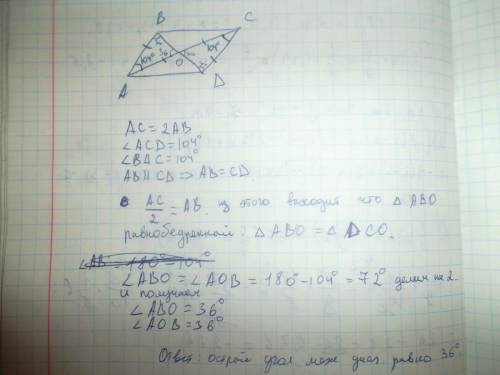 B
C
104° 36°
O
104°
A
D
AC = 2AB
∠ACD = 104°
∠BAC = 104°
AB || CD => AB = CD
AC/2 = AB. из этого выходит что △ABO
равнобедренный: △ABO = △DCO.
∠AB = 180° - 104°
∠ABO = ∠AOB = 180° - 104° = 72° делим на 2.
и получаем
∠ABO = 36°
∠AOB = 36°
Ответ: острый угол. меж диаг. равно 36°.